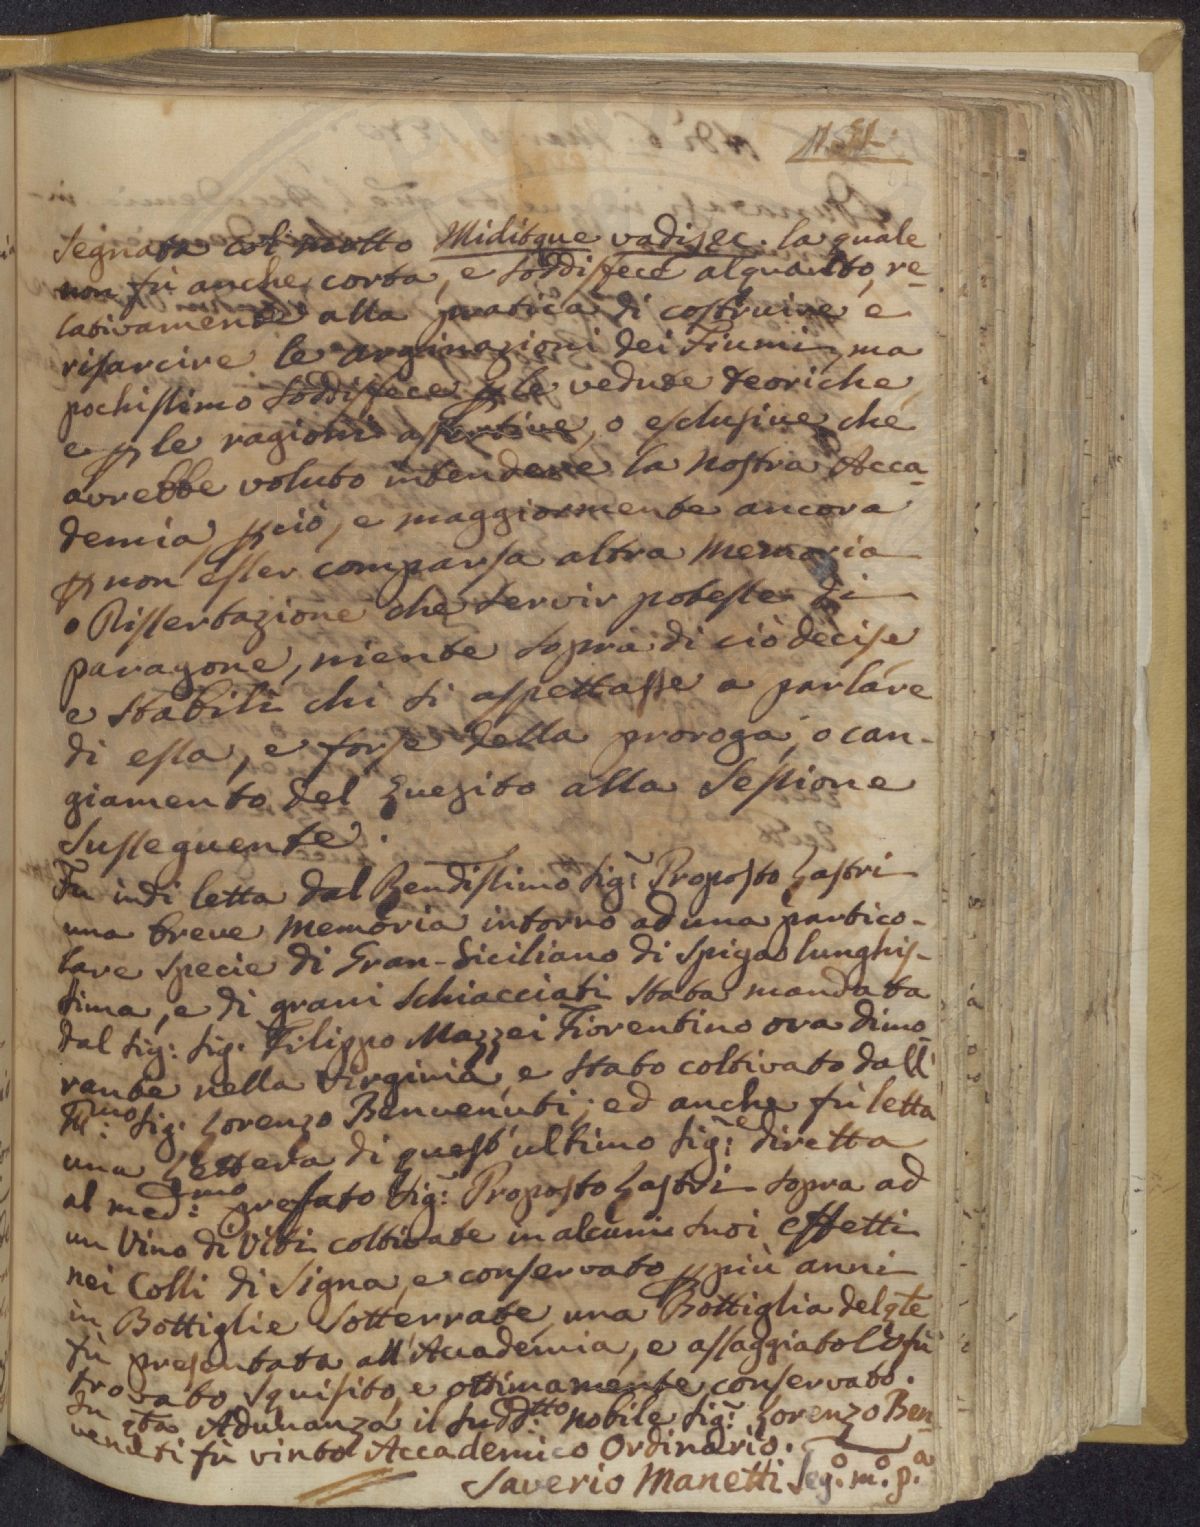 51.
segnata col motto Miditque vadisec. la quale
non fù anche corta, e soddisfece alquanto, re-
lativamente alla pratica di costruire e
risarcire le arginazioni dei Fiumi, ma
pochissimo soddisfece p le vedute teoriche,
e p le ragioni assertive, o esclusive che
avrebbe voluto intendere la nostra Acca-
demia, p ciò, e maggiormente ancora
p non esser comparsa altra Memoria
o Dissertazione che servir potesse di
paragone, niente sopra di ciò decise
e stabilì chi si aspettasse a parlare
di essa, e forse della proroga, o can-
giamento del Quesito alla Sessione
susseguente.
Fu indi letta dal Rendissimo Sig: Proposto Lastri
una breve Memoria intorno ad una partico-
lare specie di Gran-Siciliano di spiga lunghis-
sima, e di grani schiacciati stata mandata
dal Sig: Sig: Filippo Mazzei Fiorentino ora dimo-
rante nella Virginia, e stato coltivato dall'
Ill:mo Sig: Lorenzo Benvenuti; ed anche fù letta
una Lettera di quest'ultimo Sig:e diretta
al med:mo prefato Sig: Proposto Lastri sopra ad
un Vino di Viti coltivate in alcuni suoi effetti
nei Colli di Signa, e conservato p più anni
in Bottiglie sotterrate, una Bottiglia del qle
fù presentata all'Accademia, e assaggiatolo fù
trovato squisito, e ottimamente conservato.
In qta Adunanza il sudd:tto nobile Sig: Lorenzo Ben-
venuti fù vinto Accademico Ordinario.
Saverio Manetti Seg.o m.o p.a